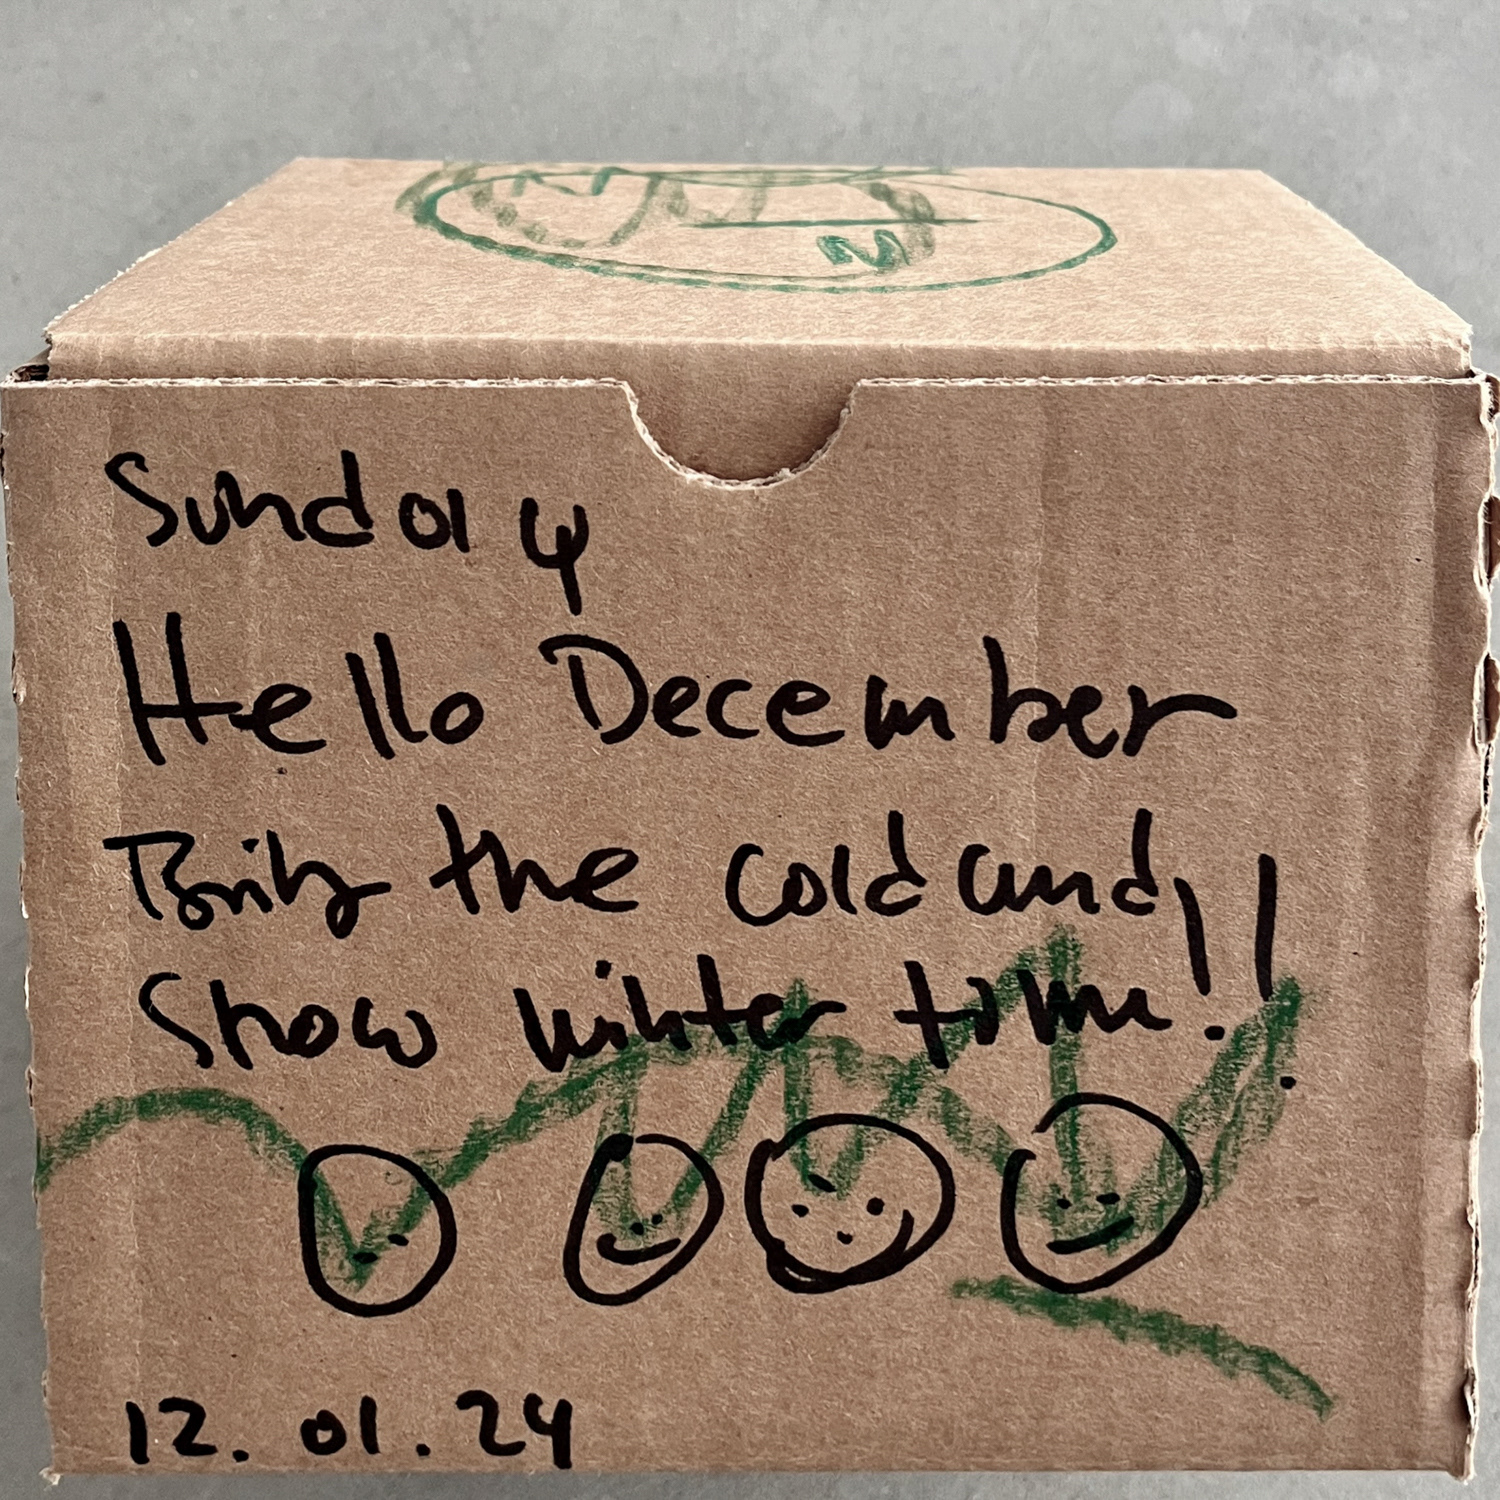 Sunday
Hello December
Bring the cold and
Snow winter time!!
12.01.24